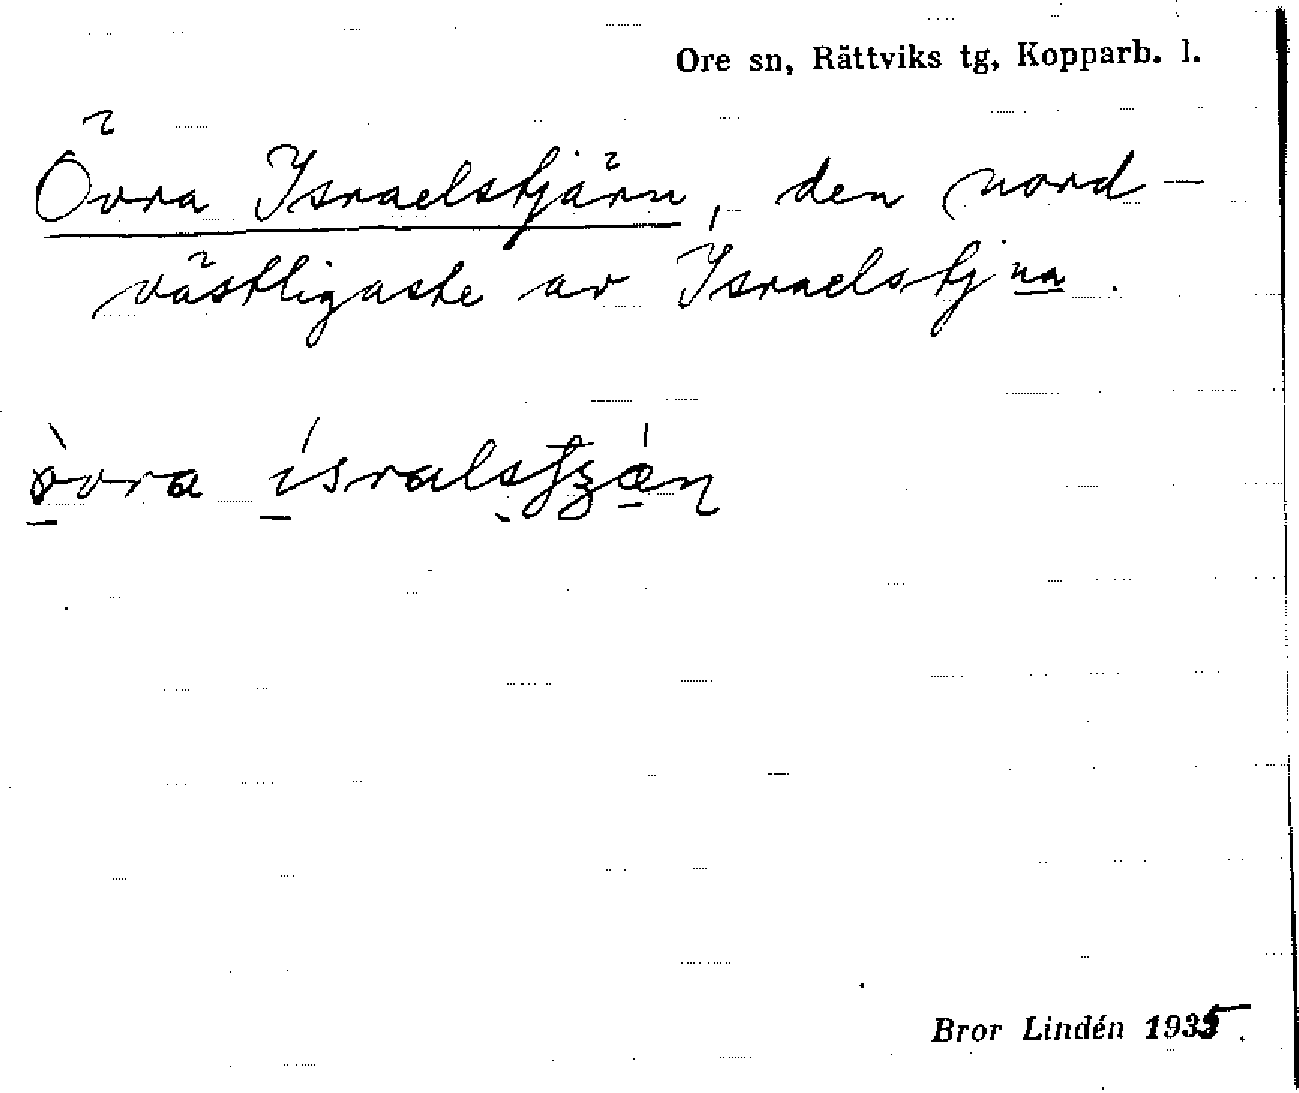 Ore sn, Rättviks tg, Kopparb. l.
Övra Israelstjärn, den nord-
västligaste av Israelstjna.
Bror Lindén 1935.